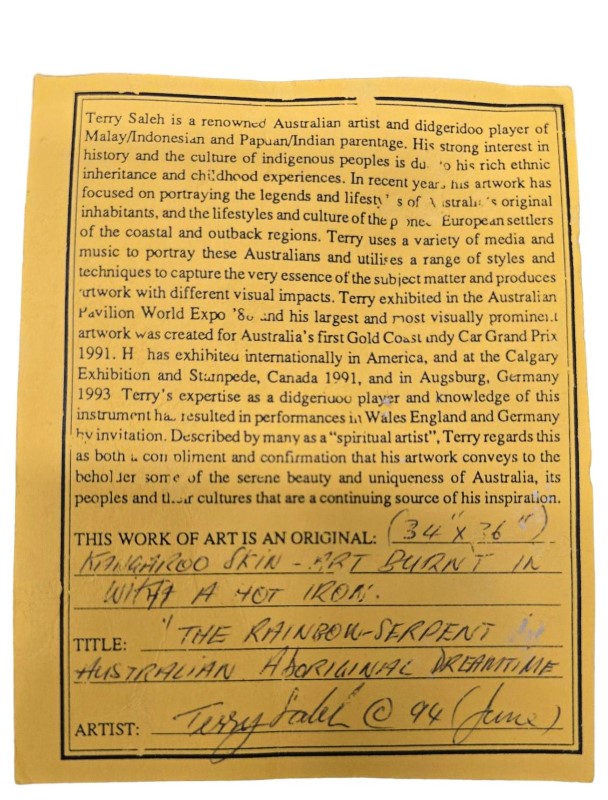 Terry Saleh is a renowned Australian artist and didgeridoo player of
Malay/Indonesian and Papuan/Indian parentage. His strong interest in
history and the culture of indigenous peoples is du to his rich ethnic
inheritance and childhood experiences. In recent years his artwork has
focused on portraying the legends and lifestyles of Australia's original
inhabitants, and the lifestyles and culture of the pioneer European settlers
of the coastal and outback regions. Terry uses a variety of media and
music to portray these Australians and utilises a range of styles and
techniques to capture the very essence of the subject matter and produces
artwork with different visual impacts. Terry exhibited in the Australian
Pavilion World Expo '88 and his largest and most visually prominent
artwork was created for Australia's first Gold Coast Indy Car Grand Prix
1991. H has exhibited internationally in America, and at the Calgary
Exhibition and Stampede, Canada 1991, and in Augsburg, Germany
1993 Terry's expertise as a didgeridoo player and knowledge of this
instrument has resulted in performances in Wales England and Germany
by invitation. Described by many as a "spiritual artist", Terry regards this
as both a compliment and confirmation that his artwork conveys to the
beholder some of the serene beauty and uniqueness of Australia, its
peoples and their cultures that are a continuing source of his inspiration.
THIS WORK OF ART IS AN ORIGINAL: (34" X 36")
KANGAROO SKIN - ART BURNT IN
WITH A HOT IRON.
TITLE: "THE RAINBOW-SERPENT
AUSTRALIAN ABORIGINAL DREAMTIME
ARTIST: Terry Saleh © 94 (June)